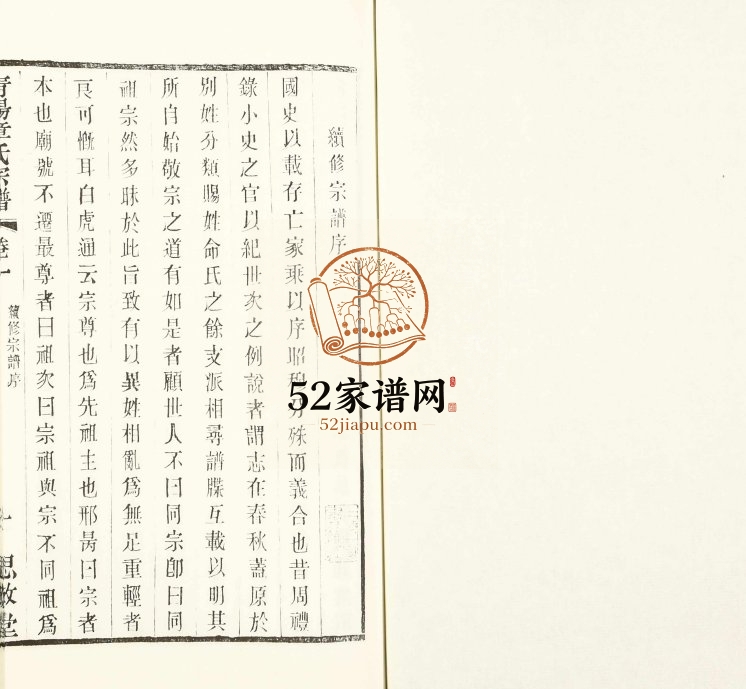 續修宗譜序
國史以載存亡家乘以序昭穆分殊而義合也昔周禮
錄小史之官以紀世次之例說者謂志在春秋蓋原於
別姓分類賜姓命氏之餘支派相尋譜牒互載以明其
所自始敬宗之道有如是者顧世人不曰同宗卽曰同
祖宗然多昧於此旨致有以異姓相亂爲無足重輕者
良可慨耳白虎通云宗尊也爲先祖主也邢昺曰宗者
本也廟號不遷最尊者曰祖次曰宗祖與宗不同祖爲
青陽章氏宗譜
卷一
續修宗譜序
思敬堂
52家谱网
52jiapu.com